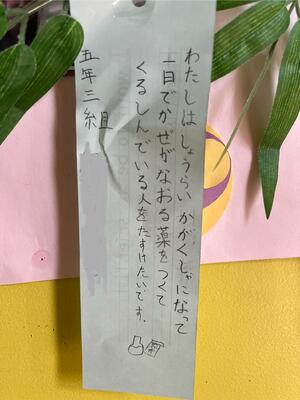 わたしはしょうらいかがくしゃになって
一日でかぜがなおる薬をつくて
くるしんでいる人をたすけたいです。
五年三組